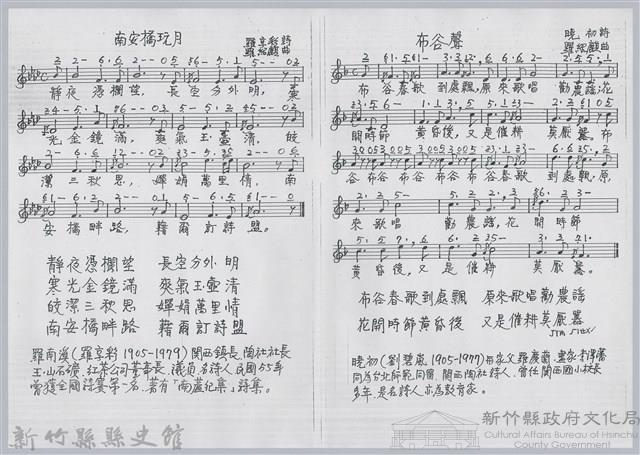 南安橋玩月
羅享彩 詩
羅紹麒 曲
靜夜憑欄望，長空分外明，寒
光金鏡滿，爽氣玉壺清，皎
潔三秋思，嬋娟萬里情，南
安橋畔路，藉爾訂詩盟。
靜夜憑欄望 長空分外明
寒光金鏡滿 爽氣玉壺清
皎潔三秋思 嬋娟萬里情
南安橋畔路 藉爾訂詩盟
羅南溪(羅享彩1905-1979)關西鎮長，陶社社長
玉山石礦，紅茶公司董事長，議員，名詩人，民國55年
曾獲全國詩賽第一名，著有「南蘆紀集」詩集。
新竹縣縣史館
布谷聲
曉初 詩
羅紹麒 曲
布谷春歌到處飄，原來歌唱勸農謠，花
開時節黃昏後，又是催耕莫厭囂，布
谷布谷布谷布谷布谷春歌到處飄，原
來歌唱勸農謠，花開時節
黃昏後，又是催耕莫厭囂。
布谷春歌到處飄 原來歌唱勸農謠
花開時節黃昏後 又是催耕莫厭囂
曉初(劉碧嵐，1905-1977)與家父羅慶蘭
同為台北師範同窗，關西陶社詩人，曾任關西國小校長
多年，是名詩人，亦為教育家。
新竹縣政府文化局
Cultural Affairs Bureau of Hsinchu
County Government